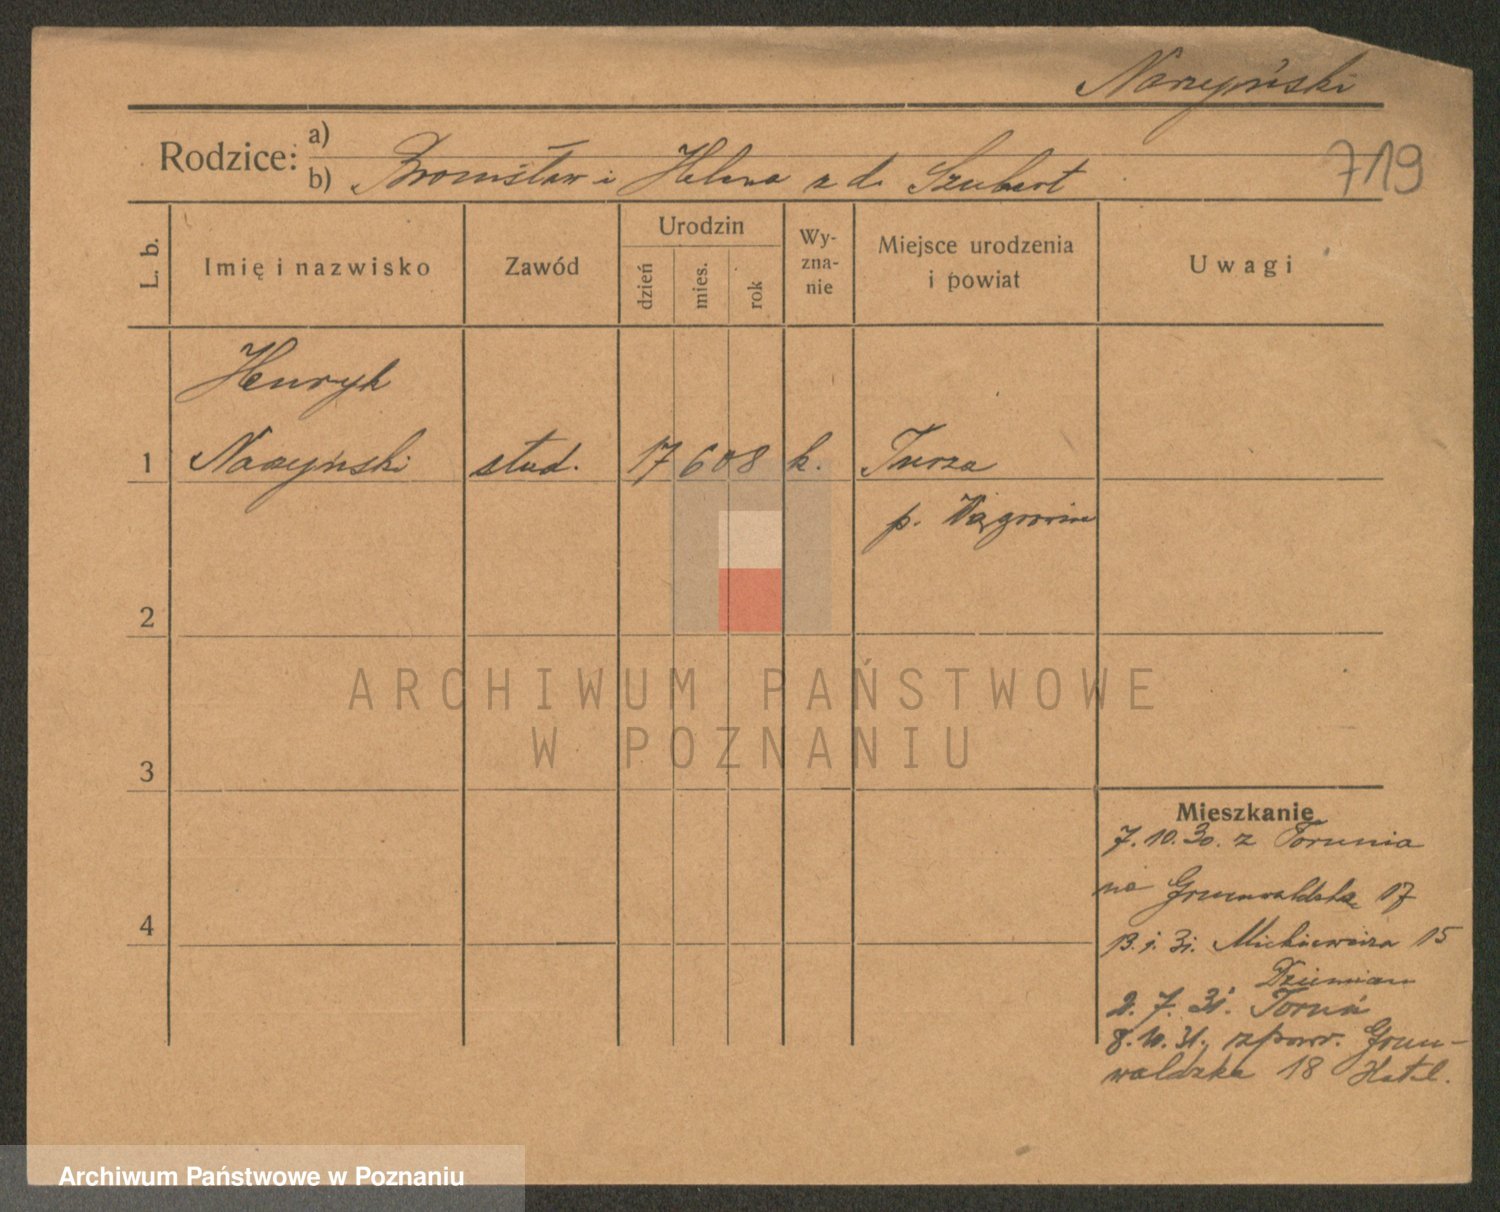 Narzyński
719
Rodzice: a)
b) Bronisław i Helena z d. Szubert
L. b.
Imię i nazwisko
Zawód
Urodzin
dzień
mies.
rok
Wy-
zna-
nie
Miejsce urodzenia
i powiat
Uwagi
Henryk
1 Narzyński stud. 17 6 08 k. Turza
p. Wągrowiec
2
3
4
Mieszkanie
7.10.30. z Torunia
na Grunwaldzka 17
13.1.31. Mickiewicza 15
Dziemian
2.7.31. Toruń
8.10.31. z pow. Grun-
waldzka 18 Hotel.
ARCHIWUM PAŃSTWOWE
W POZNANIU
Archiwum Państwowe w Poznaniu